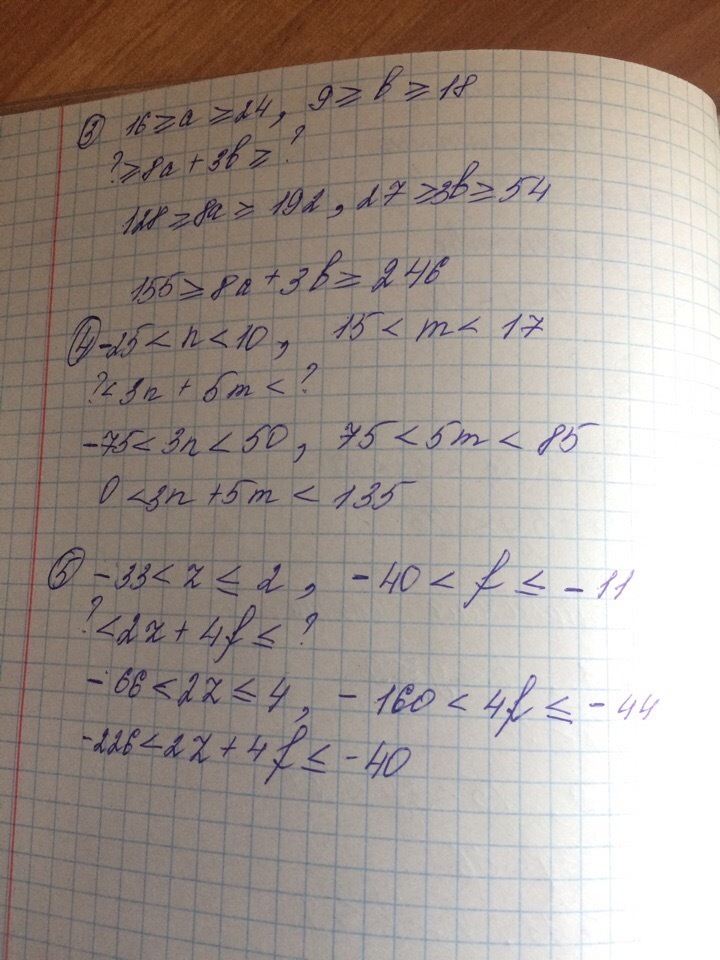 ③ 16 ≥ a ≥ 24, 9 ≥ b ≥ 18
? ≥ 8a + 3b ≥ ?
128 ≥ 8a ≥ 192, 27 ≥ 3b ≥ 54
155 ≥ 8a + 3b ≥ 246
④ -25 < n < 10, 15 < m < 17
? < 3n + 5m < ?
-75 < 3n < 50, 75 < 5m < 85
0 < 3n + 5m < 135
⑤ -33 < z ≤ 2, -40 < f ≤ -11
? < 2z + 4f ≤ ?
-66 < 2z ≤ 4, -160 < 4f ≤ -44
-226 < 2z + 4f ≤ -40